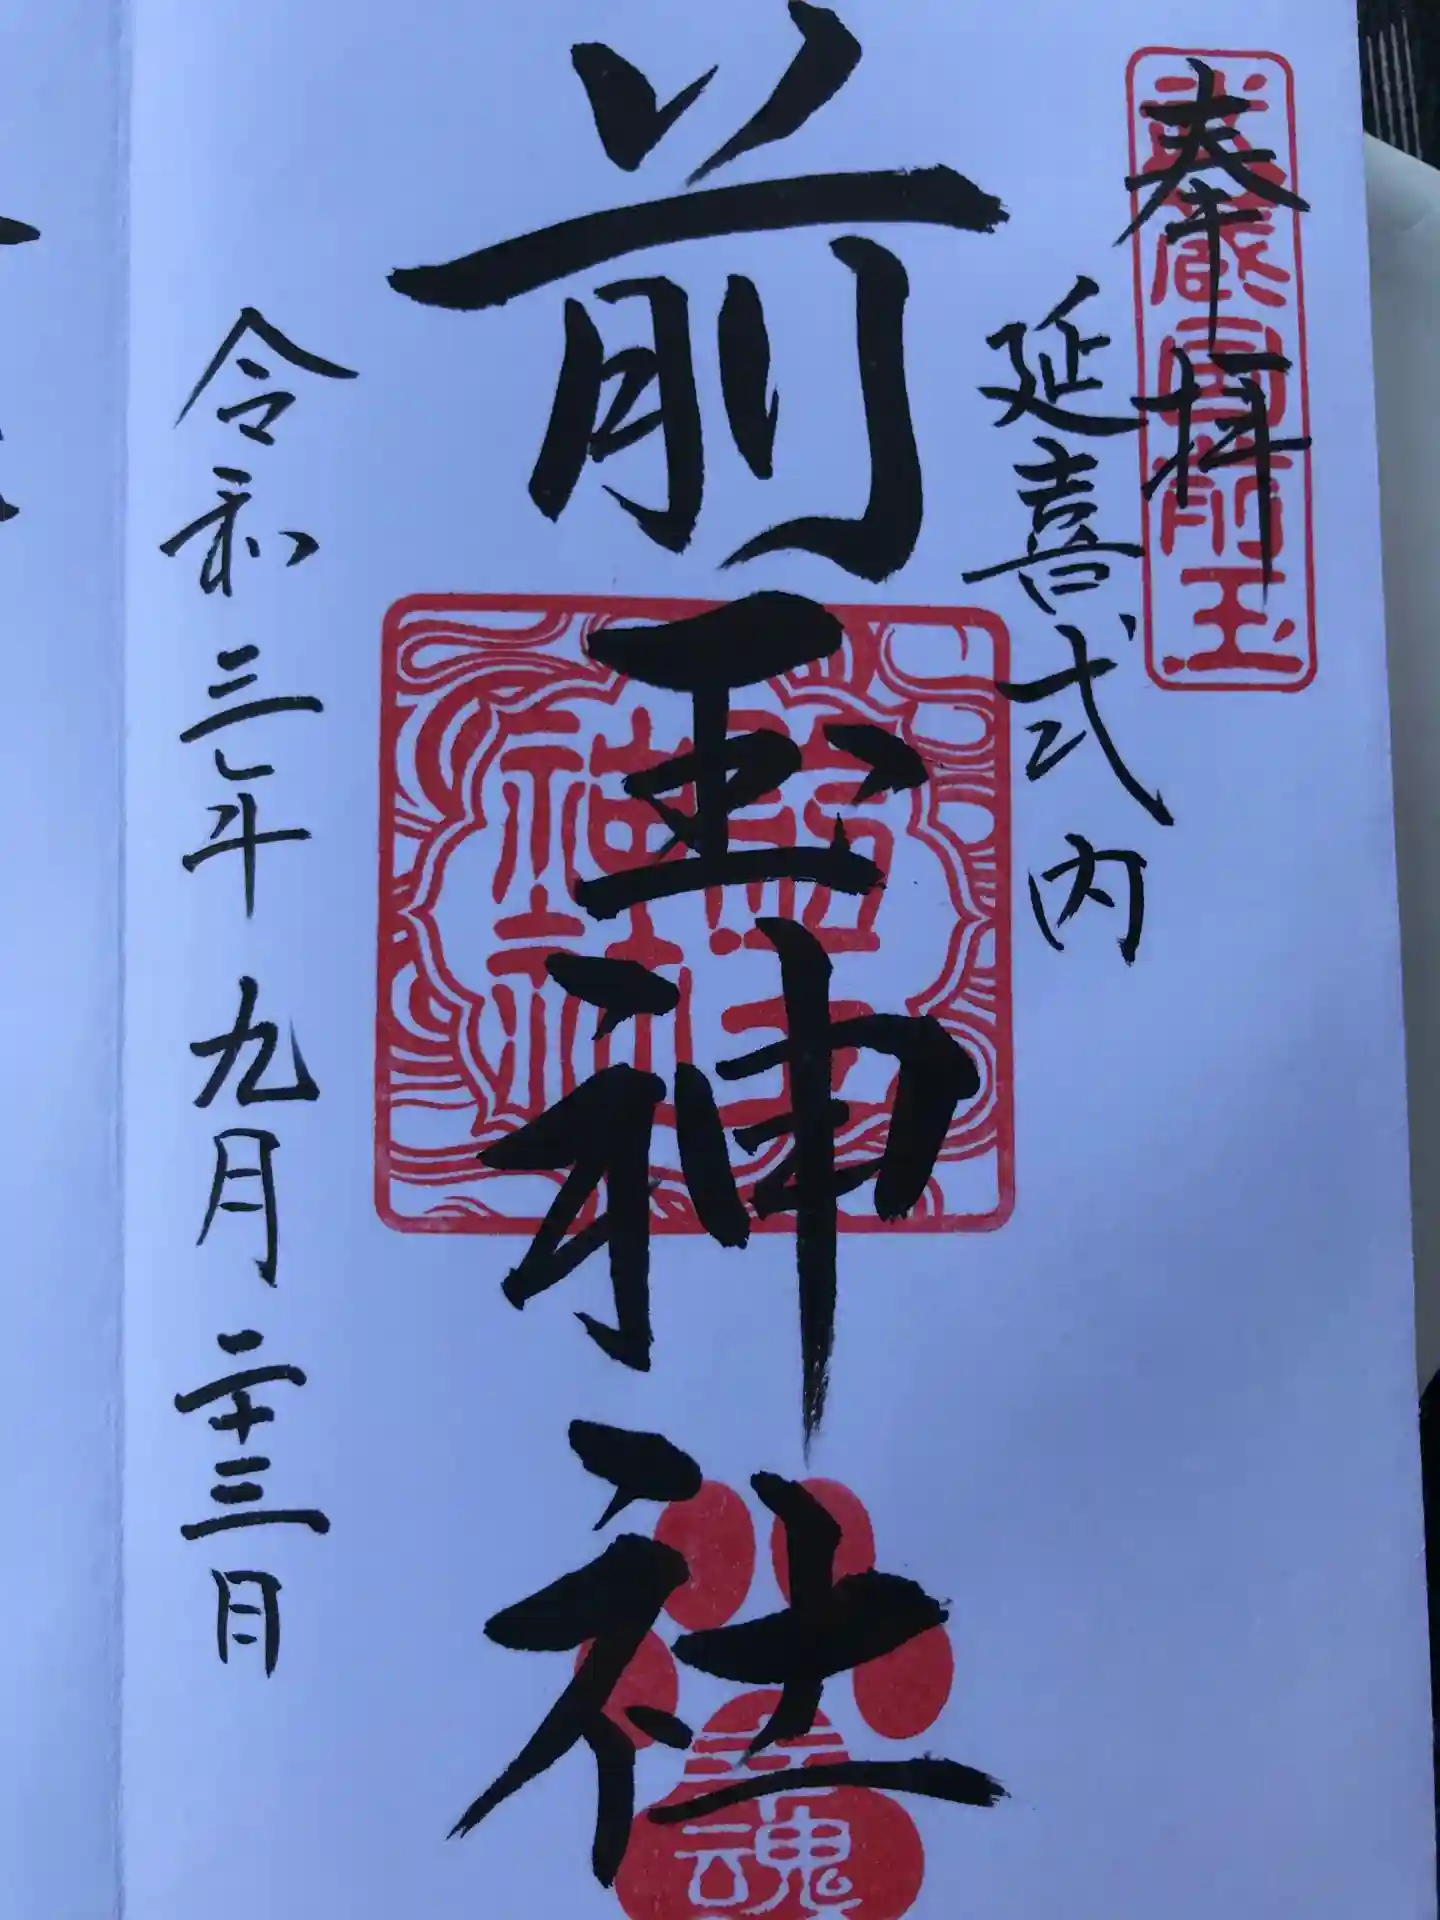 奉拝
武蔵国前玉
延喜式内
前玉神社
前玉神社
令和三年九月二十三日
幸魂